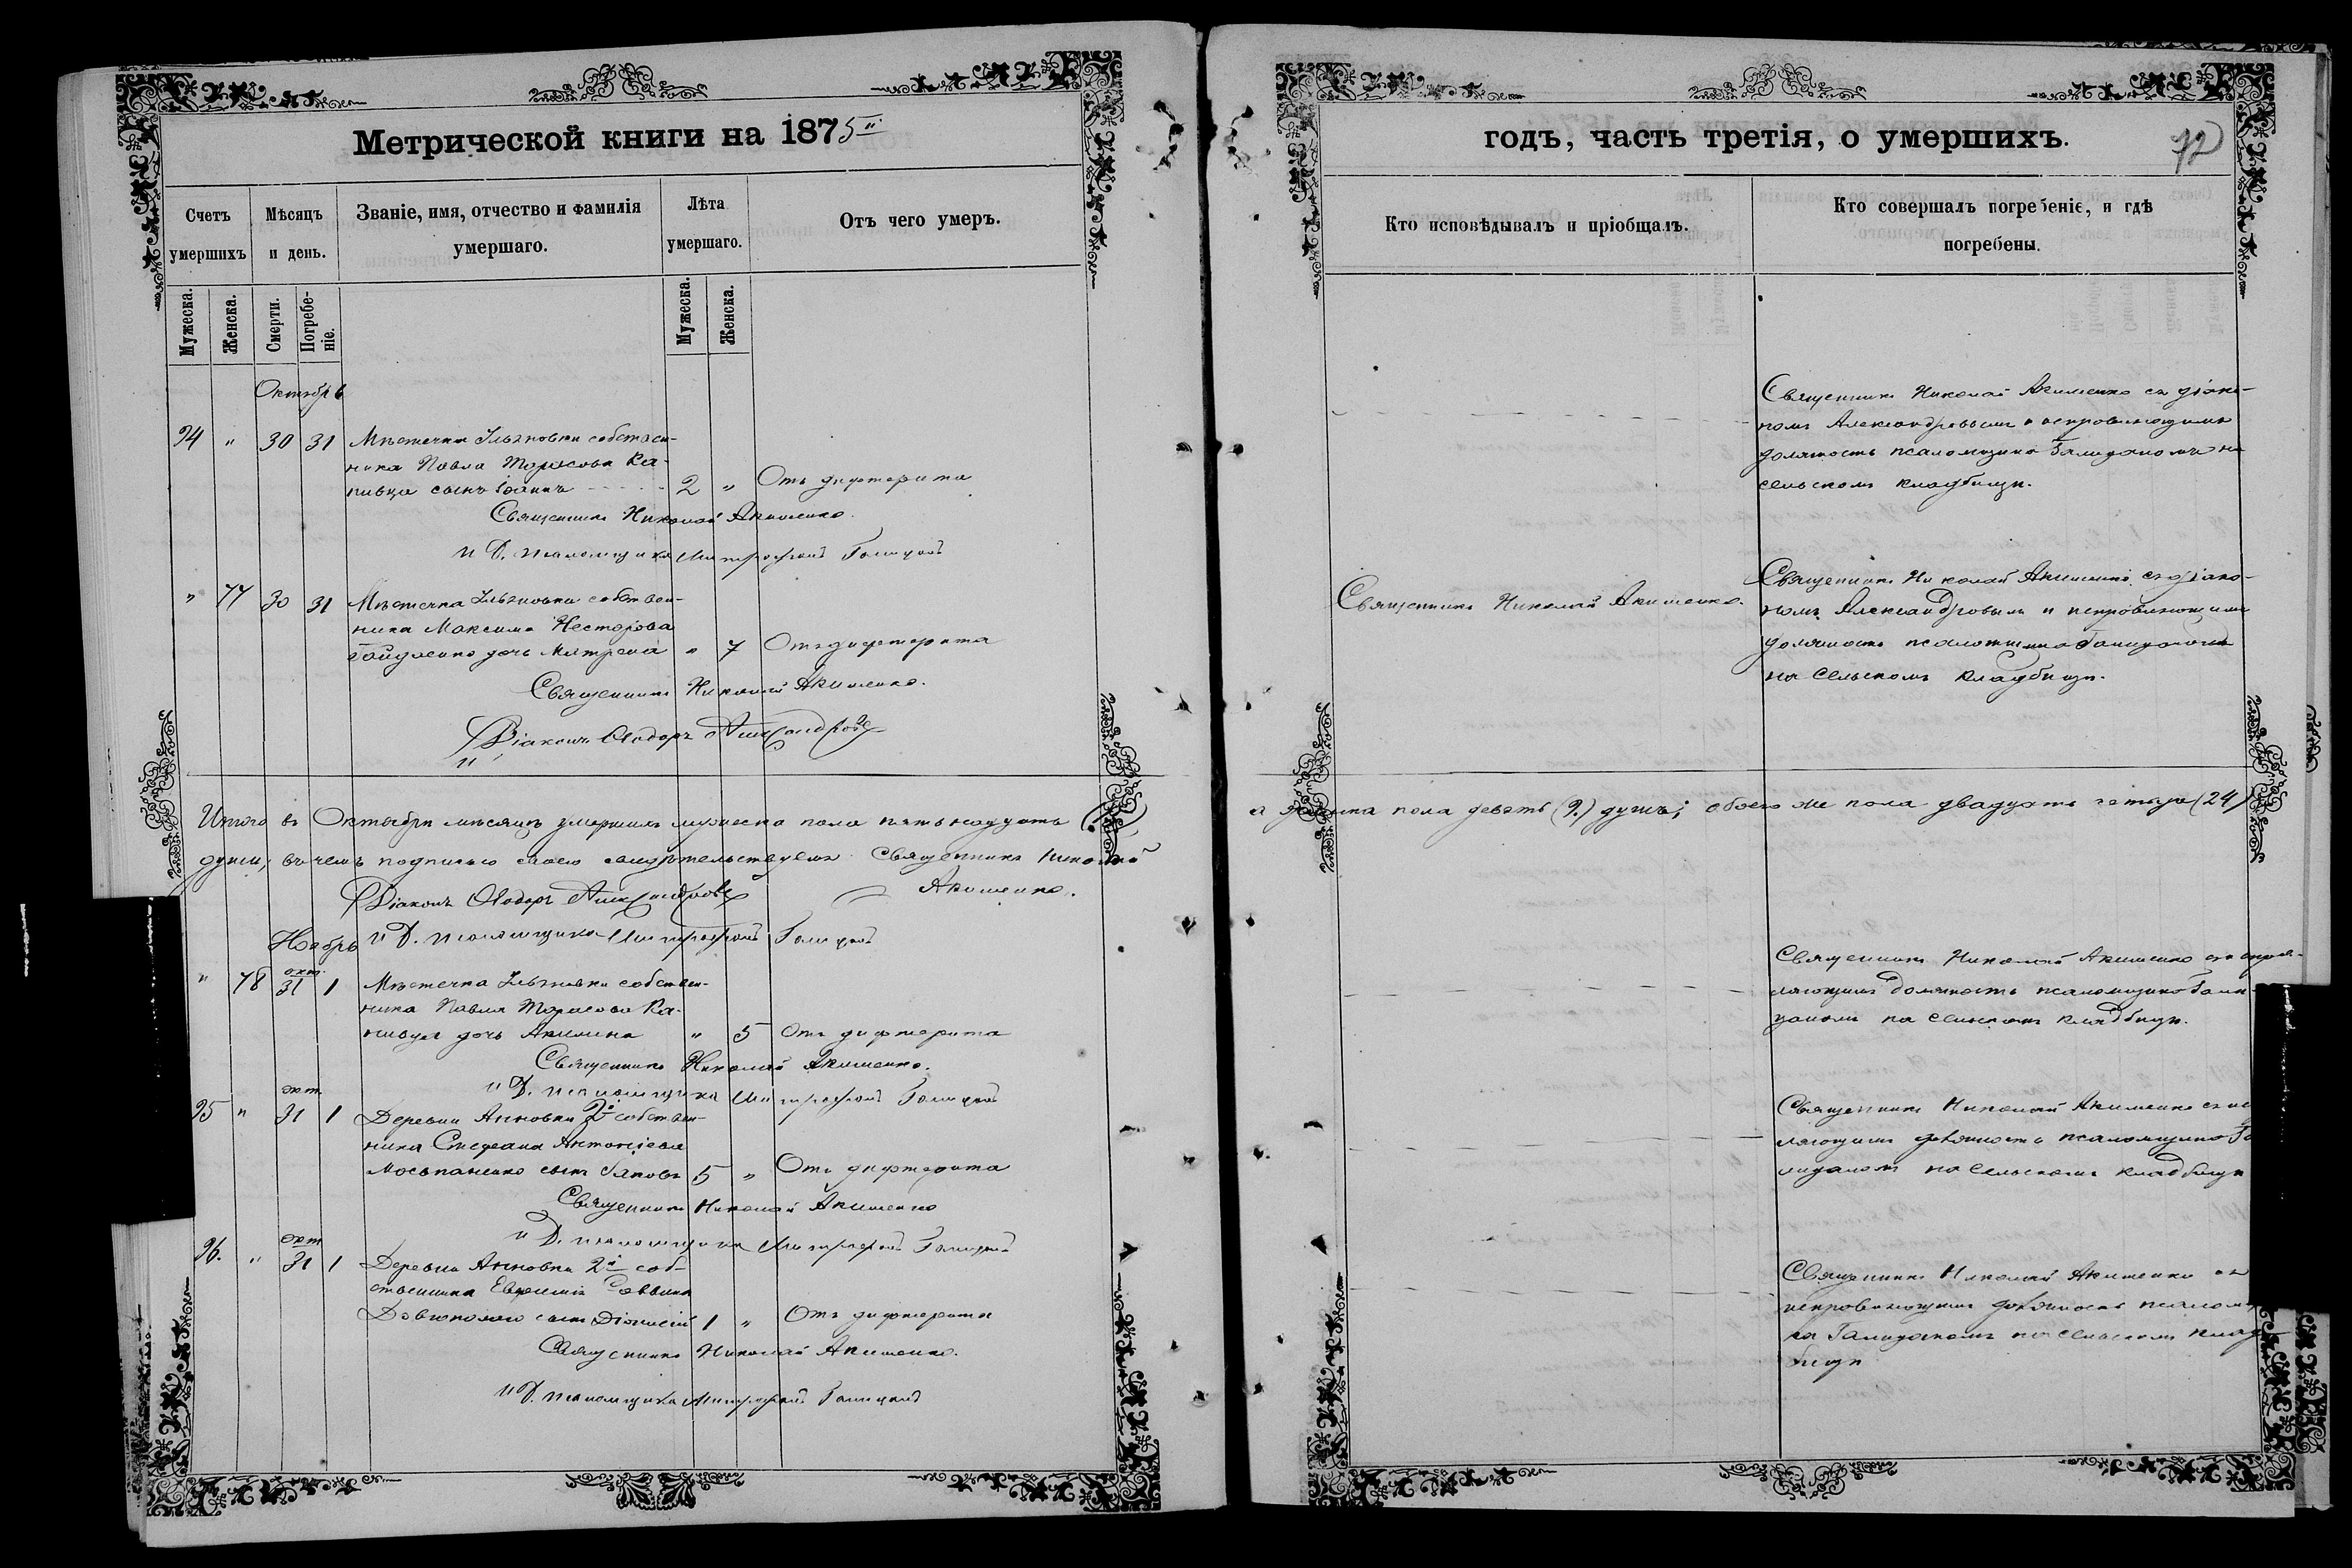 Метрической книги на 1875й
Счетъ умершихъ
Мѣсяцъ и день.
Званіе, имя, отчество и фамилія умершаго.
Лѣта умершаго.
Отъ чего умеръ.
Мужеска.
Женска.
Смерти.
Погребе-
ніе.
Мужеска.
Женска.
Октябрь
94 " 30 31 Мѣстечка Ильяновки собствен-
ника Павла Тарасова Ка-
нивца сынъ Іоаннъ 2 " Отъ дифтерита
Священникъ Николай Акименко.
И Д. псаломщика Митрофанъ Галицкій
" 77 30 31 Мѣстечка Ильяновки собствен-
ника Максима Нестерова
Гайдаенко дочь Матрена " 7 Отъ дифтерита
Священникъ Николай Акименко.
Діаконъ Ѳеодоръ Александровъ
Итого въ Октябрѣ мѣсяцѣ умершихъ мужеска пола пятьнадцать
души, въ чемъ подписью своею свидѣтельствуемъ Священникъ Николай
Акименко.
Діаконъ Ѳеодоръ Александровъ
И Д. псаломщика Митрофанъ Галицкій
Ноябрь
" 78 окт. 31 1 Мѣстечка Ильяновки собствен-
ника Павла Тарасова Ка-
нивца дочь Акилина " 5 Отъ дифтерита
Священникъ Николай Акименко.
И Д. псаломщика Митрофанъ Галицкій
95 " окт. 31 1 Деревни Анновки 2й собствен-
ника Стефана Антоніева
Мосьпаненко сынъ Іаковъ 5 " Отъ дифтерита
Священникъ Николай Акименко
И Д. псаломщика Митрофанъ Галицкій
96. " окт. 31 1 Деревни Анновки 2й соб-
ственника Евфимія Саввина
сынъ Діонисій 1 " Отъ дифтерита
Священникъ Николай Акименко.
И Д. псаломщика Митрофанъ Галицкій
годъ, часть третія, о умершихъ.
72
Кто исповѣдывалъ и пріобщалъ.
Кто совершалъ погребеніе, и гдѣ
погребены.
Священникъ Николай Акименко съ діако-
номъ Александровымъ и исправляющимъ
должность псаломщика Галицкимъ на
сельскомъ кладбищѣ.
Священникъ Николай Акименко.
Священникъ Николай Акименко съ діако-
номъ Александровымъ и исправляющимъ
должность псаломщика Галицкимъ
на сельскомъ кладбищѣ.
а женска пола девять (9.) душъ; обоего же пола двадцать четыре (24)
Священникъ Николай Акименко съ исправ-
ляющимъ должность псаломщика Гали-
цкимъ на сельскомъ кладбищѣ.
Священникъ Николай Акименко съ ис
ляющимъ должность псаломщика Га
лицкимъ на сельскомъ кладбищѣ
Священникъ Николай Акименко съ
исправляющимъ должность псалом
ка Галицкимъ на сельскомъ клад-
бищѣ